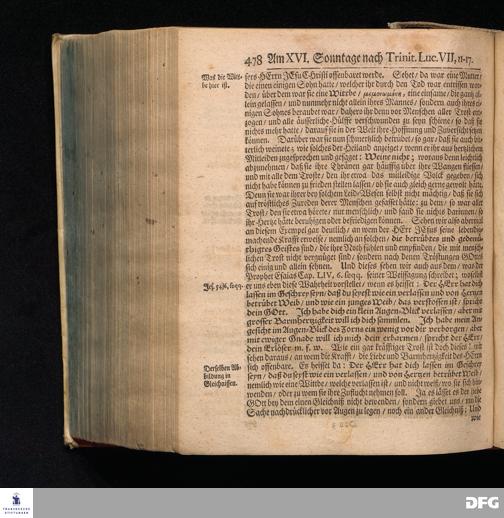 478 Am XVI. Sonntage nach Trinit. Luc. VII, 11-17.
Was die Witt-
be hier ist.
sers HErrn JEsu Christi offenbaret werde. Sehet / da war eine Mutter /
die einen einigen Sohn hatte / welcher ihr durch den Tod war entrissen wor-
den / über dem war sie eine Witbe / eine einsame / die gantz al-
lein gelassen / und nunmehr nicht allein ihres Mannes / sondern auch ihres ei-
nigen Sohnes beraubet war / dahero ihr denn vor Menschen aller Trost ent-
zogen / und alle äusserliche Hülffe verschwunden zu seyn schiene / so daß sie
nichts mehr hatte / darauf sie in der Welt ihre Hoffnung und Zuversicht setzen
können. Darüber war sie nun schmertzlich betrübet / so gar / daß sie auch bit-
terlich weinete; wie solches der Heiland anzeiget / wenn er ihr aus hertzlichem
Mitleiden zugesprochen und gesaget: Weine nicht; woraus denn leichtlich
abzunehmen / daß sie ihre Thränen gar häuffig über ihre Wangen fliessen /
und mit alle dem Troste / den ihr etwa das mitleidige Volck gegeben / sich
nicht habe können zu frieden stellen lassen / ob sie auch gleich gerne gewolt hätte.
Denn sie war ihrer bey solchem Leid-Wesen selbst nicht mächtig / daß sie sich
auf tröstliches Zureden derer Menschen gefasset hätte: zu dem / so war aller
Trost / den sie etwa hörete / nur menschlich / und fand sie nichts darinnen / so
ihr Hertze hätte beruhigen oder befriedigen können. Sehen wir also abermal
an diesem Exempel gar deutlich / an wem der HErr JEsus seine lebendig-
machende Krafft erweise / nemlich an solchen / die betrübtes und gedemü-
thigtes Geistes sind / die ihre Noth fühlen und empfinden / die mit mensch-
lichem Trost nicht vergnüget sind / sondern nach denen Tröstungen GOttes
sich einig und allein sehnen. Und dieses sehen wir auch aus dem / was der
Prophet Esaias Cap. LIV, 6. seqq. seiner Weissagung schreibet; woselbst
Jes. 54, 6. seqq.
er uns eben diese Wahrheit vorstellet / wenn es heisset: Der HErr hat dich
lassen im Geschrey seyn / daß du seyest wie ein verlassen und von Hertzen
betrübet Weib / und wie ein junges Weib / das verstossen ist / spricht
dein GOtt. Ich habe dich ein klein Augen-Blick verlassen / aber mit
grosser Barmhertzigkeit will ich dich sammlen. Ich habe mein An-
gesicht im Augen-Blick des Zorns ein wenig vor dir verborgen / aber
mit ewiger Gnade will ich mich dein erbarmen / spricht der HErr /
dein Erlöser u. s. w. Wie ein gar kräfftiger Trost ist doch dieses! wir
sehen daraus / an wem die Krafft / die Liebe und Barmhertzigkeit des HErrn
Derselben Ab-
bildung in
Gleichnissen.
sich offenbare. Es heisset da: Der HErr hat dich lassen im Geschrey
seyn / daß du seyst wie ein verlassen / und von Hertzen betrübet Weib /
nemlich wie eine Wittbe / welche verlassen ist / und nicht weiß / wo sie sich hin-
wenden / oder zu wem sie ihre Zuflucht nehmen soll. Ja es lässet es der liebe
GOtt bey dem einen Gleichniß nicht bewenden / sondern giebet uns / um die
Sache nachdrücklicher vor Augen zu legen / noch ein ander Gleichniß; Und
wie
FRANCKESCHE
STIFTUNGEN
DFG